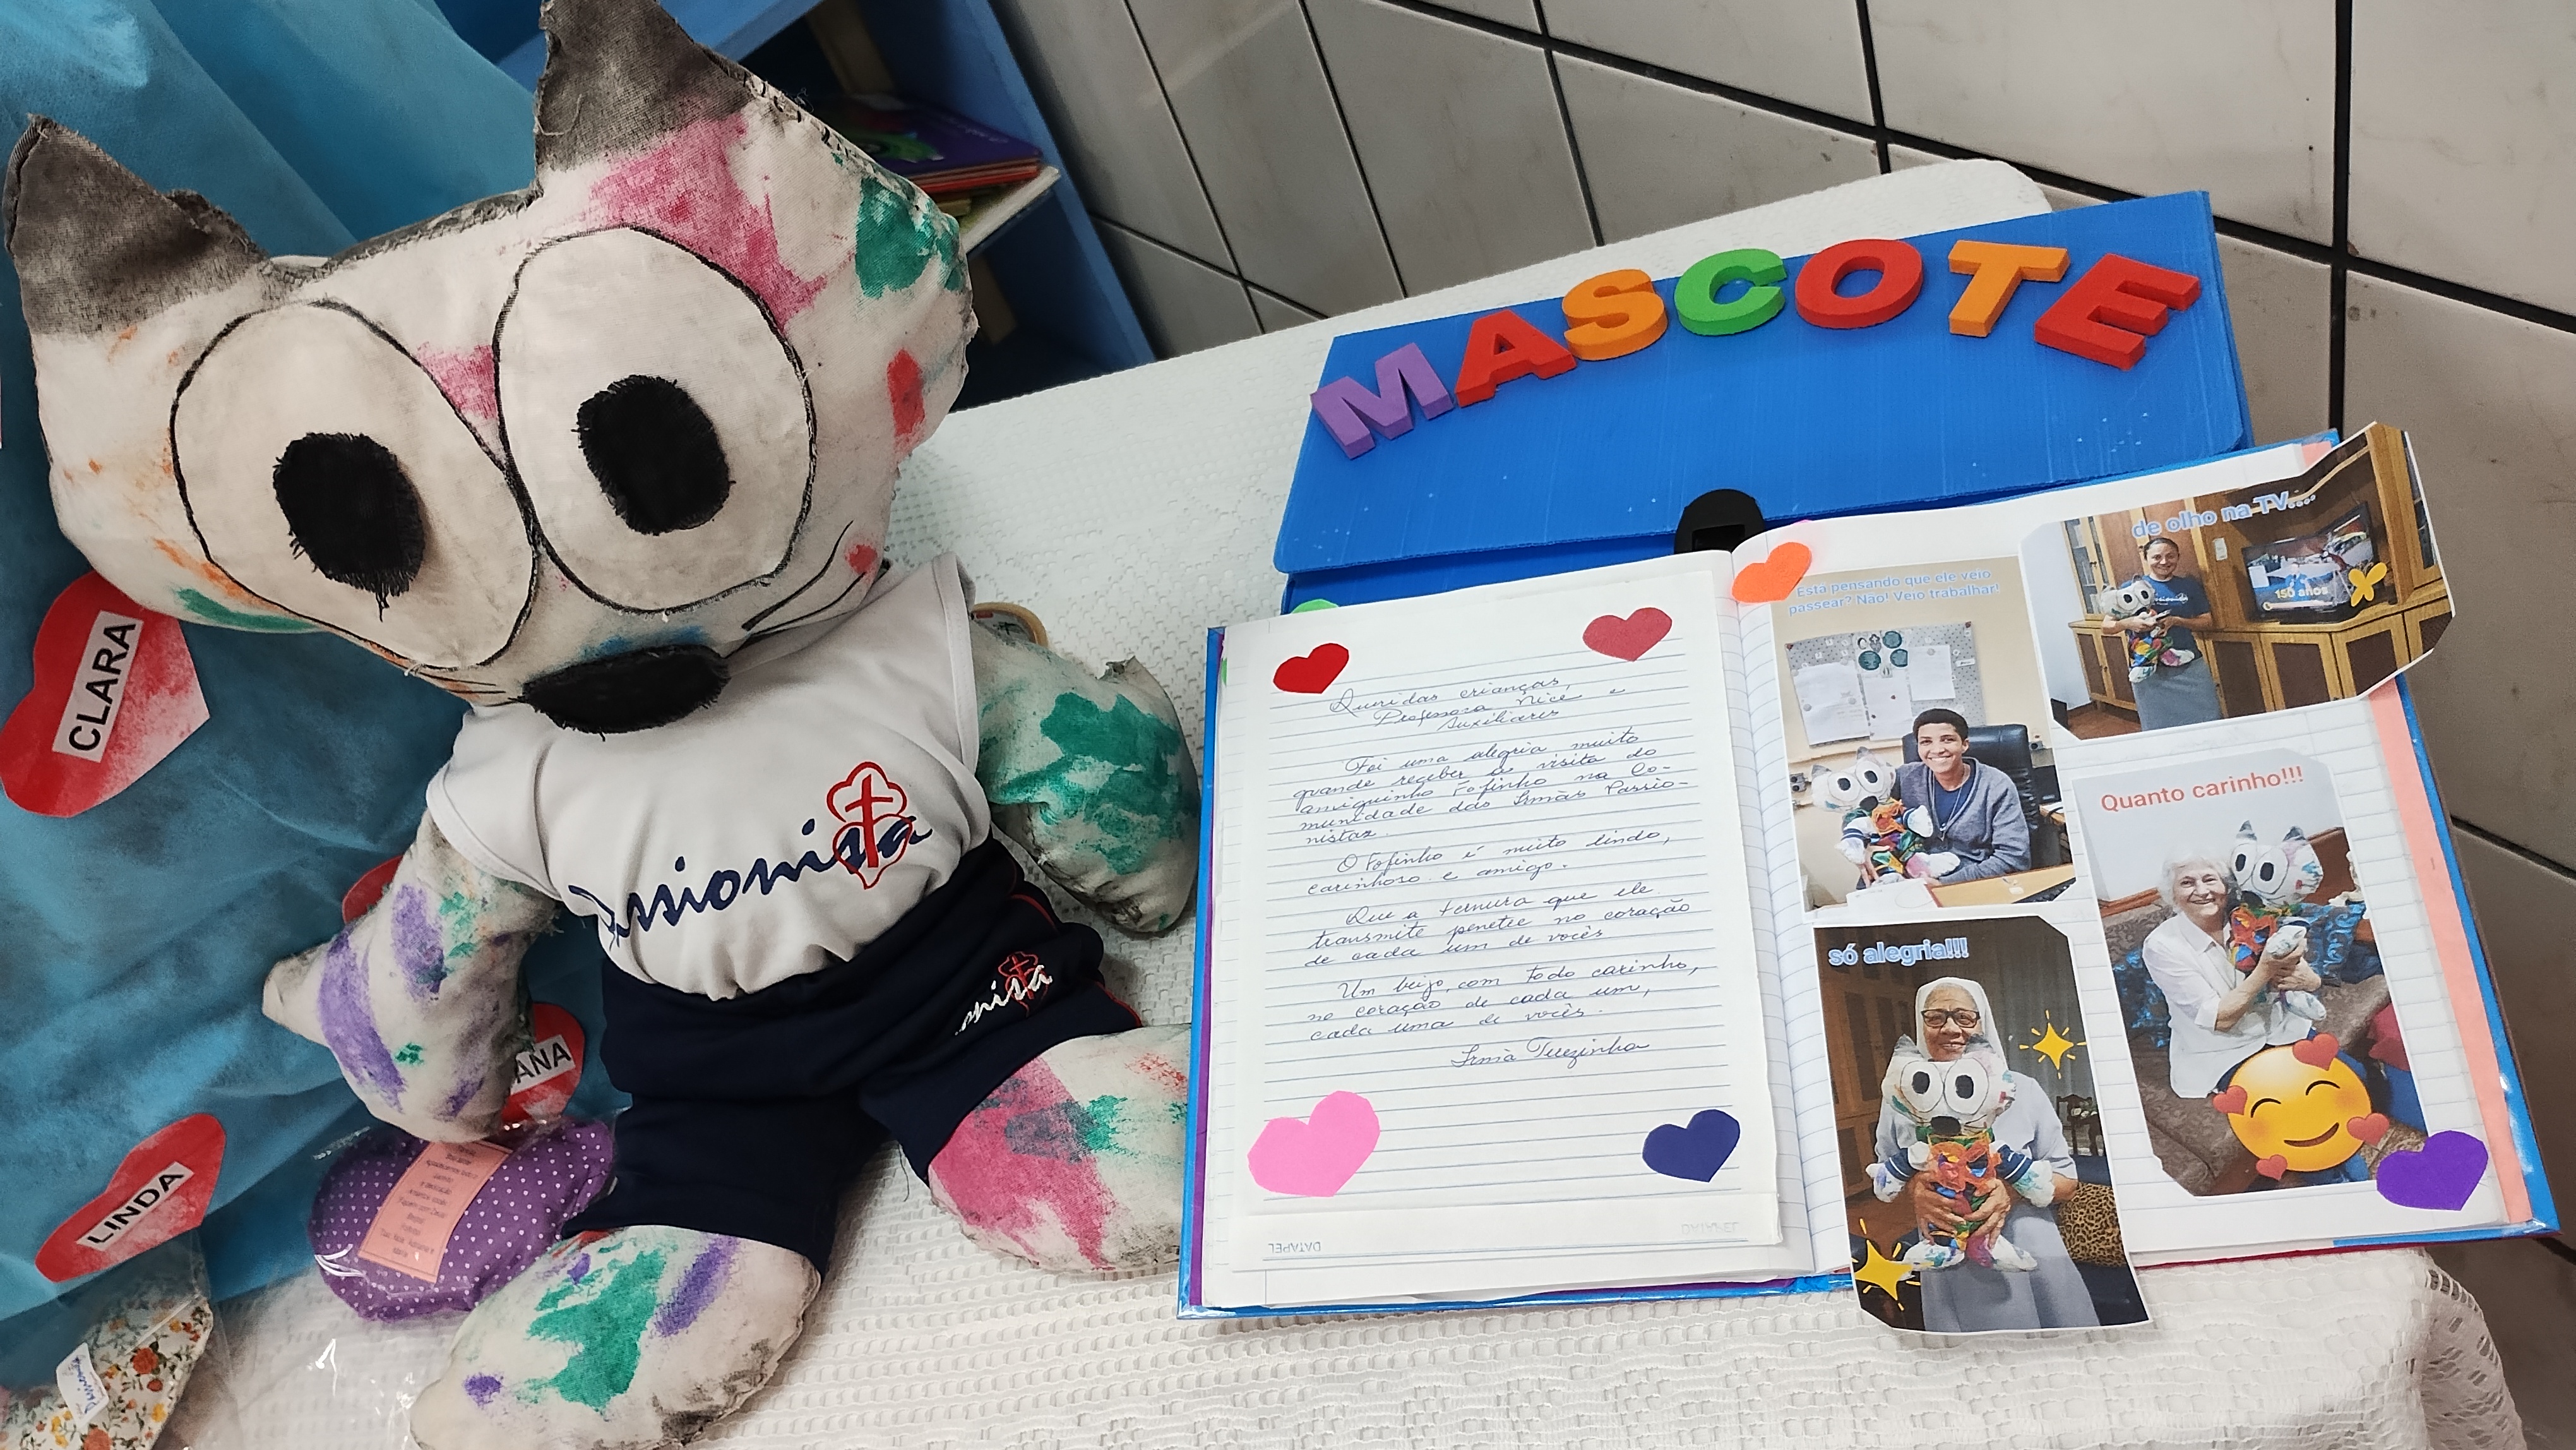 MASCOTE
CLARA
LINDA
ANA
ssionista
onista
Queridas crianças,
Professora Nice e
Auxiliares
Foi uma alegria muito
grande receber a visita do
amiguinho Fofinho na Co-
munidade das Irmãs Passio-
nistas.
O Fofinho é muito lindo,
carinhoso e amigo.
Que a ternura que ele
transmite penetre no coração
de cada um de vocês
Um beijo, com todo carinho,
no coração de cada um,
cada uma de vocês.
Irmã Terezinha
DATAPEL
Está pensando que ele veio
passear? Não! Veio trabalhar!
de olho na TV....
150 anos
só alegria!!!
Quanto carinho!!!